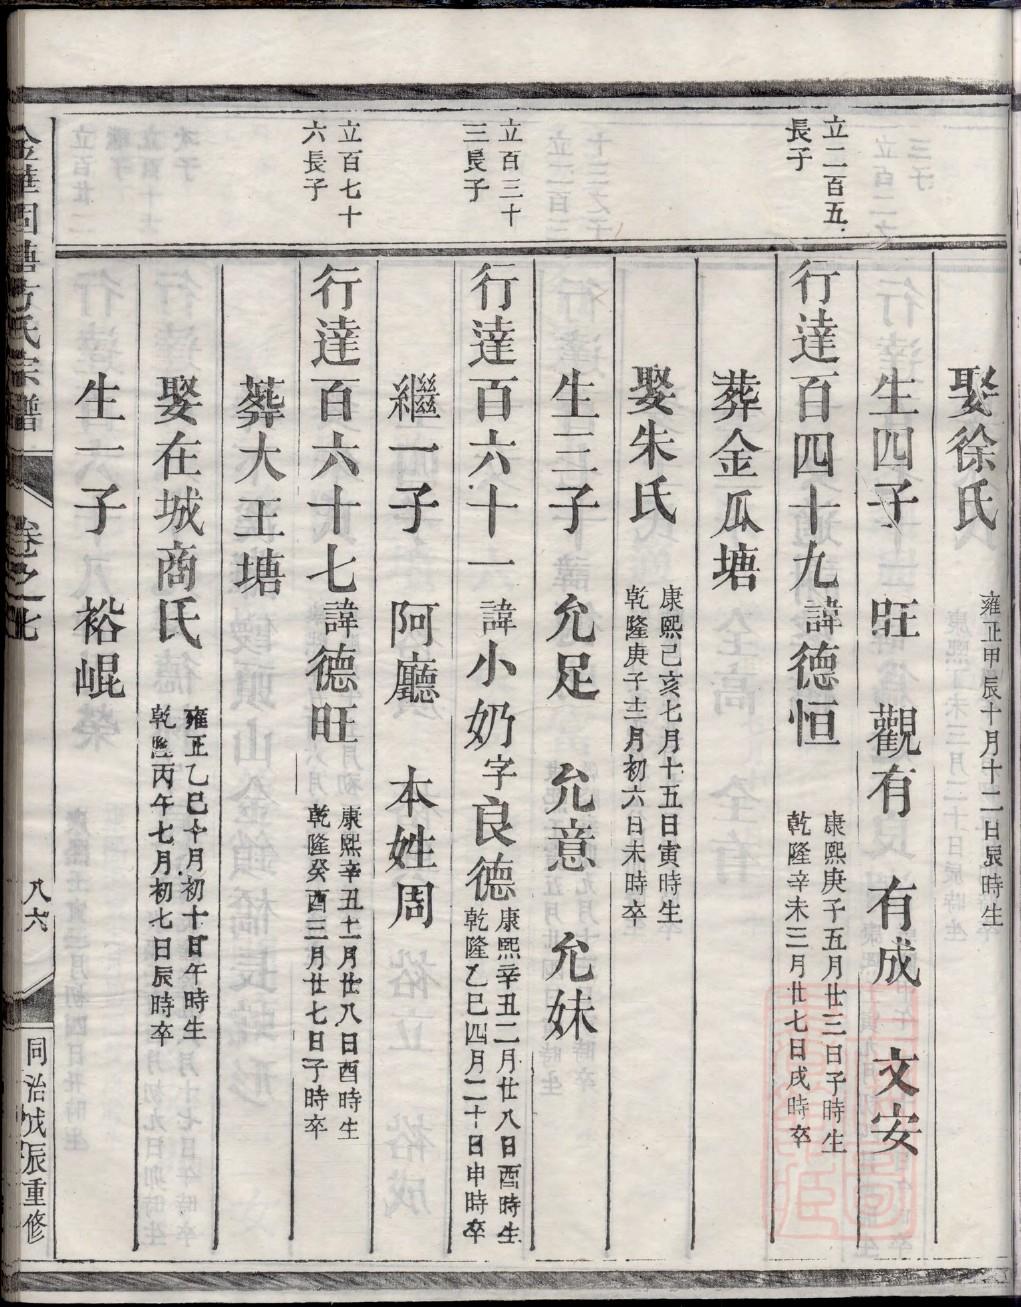 娶徐氏
雍正甲辰十月十二日辰時生
生四子 旺 觀有 有成 文安
立二百五
長子
行達百四十九諱德恒
康熙庚子五月廿三日子時生
乾隆辛未三月廿七日戌時卒
葬金瓜塘
娶朱氏
康熙己亥七月十五日寅時生
乾隆庚子十二月初六日未時卒
生三子 允足 允意 允妹
立百三十
三長子
行達百六十一諱小奶字良德
康熙辛丑二月廿八日酉時生
乾隆乙巳四月二十日申時卒
繼一子 阿廳 本姓周
立百七十
六長子
行達百六十七諱德旺
康熙辛丑十一月廿八日酉時生
乾隆癸酉三月廿七日子時卒
葬大王塘
娶在城商氏
雍正乙巳十月初十日午時生
乾隆丙午七月初七日辰時卒
生一子 裕崐
金華固塘方氏宗譜
卷之七
八六
同治戊辰重修